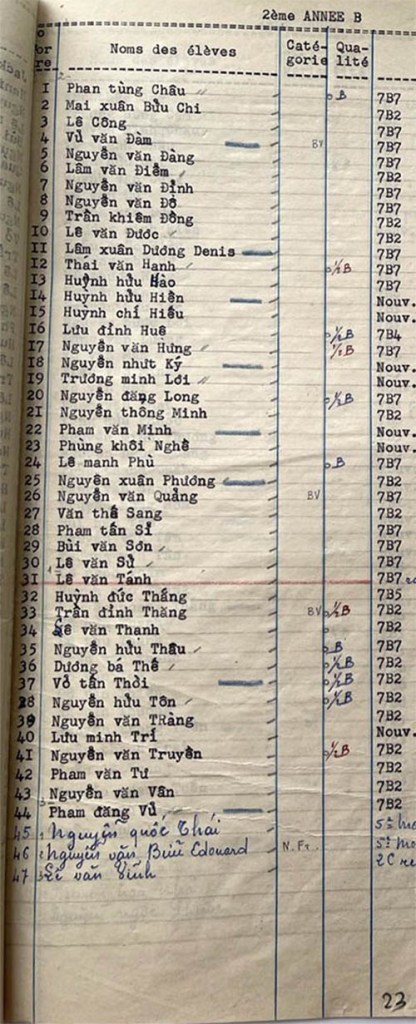 2ème ANNEE B
Noms des élèves Caté- Qua-
gorie lité
1 Phan tùng Châu B 7B7
2 Mai xuân Bửu Chi 7B2
3 Lê Công 7B7
4 Vủ văn Đàm BV 7B7
5 Nguyễn văn Đàng 7B7
6 Lâm văn Điểm 7B2
7 Nguyễn văn Đỉnh 7B7
8 Nguyễn văn Đỏ 7B2
9 Trần khiêm Đồng 7B2
10 Lê văn Được 7B2
11 Lâm xuân Dương Denis 7B7
12 Thái văn Hạnh ½B 7B7
13 Huỳnh hửu Hào 7B7
14 Huỳnh hửu Hiền Nouv.
15 Huỳnh chí Hiếu Nouv.
16 Lưu đình Huê ½B 7B4
17 Nguyễn văn Hưng ½B 7B7
18 Nguyễn nhựt Ký Nouv.
19 Trương minh Lới Nouv.
20 Nguyễn đăng Long ½B 7B7
21 Nguyễn thông Minh 7B2
22 Phạm văn Minh Nouv.
23 Phùng khôi Nghê Nouv.
24 Lê mạnh Phù B 7B7
25 Nguyễn xuân Phương 7B2
26 Nguyễn văn Quảng BV 7B7
27 Văn thế Sang 7B2
28 Phạm tấn Sỉ 7B7
29 Bùi văn Sơn 7B7
30 Lê văn Sử 7B7
31 Lê văn Tánh 7B7
32 Huỳnh đức Thắng 7B5
33 Trần đình Thăng BV ½B 7B2
34 Lê văn Thạnh 7B2
35 Nguyễn hửu Thâu B 7B7
36 Dương bá Thế ½B 7B2
37 Vỏ tấn Thời ½B 7B2
38 Nguyễn hửu Tôn ½B 7B2
39 Nguyễn văn TRàng 7B2
40 Lưu minh Trí Nouv.
41 Nguyễn văn Truyền ½B 7B2
42 Phạm văn Tư 7B2
43 Nguyễn văn Vân 7B2
44 Phạm đăng Vủ 7B2
45 Nguyễn quốc Thái
46 Nguyễn văn Bửu Edouard N.Fr.
47 Lê văn
23